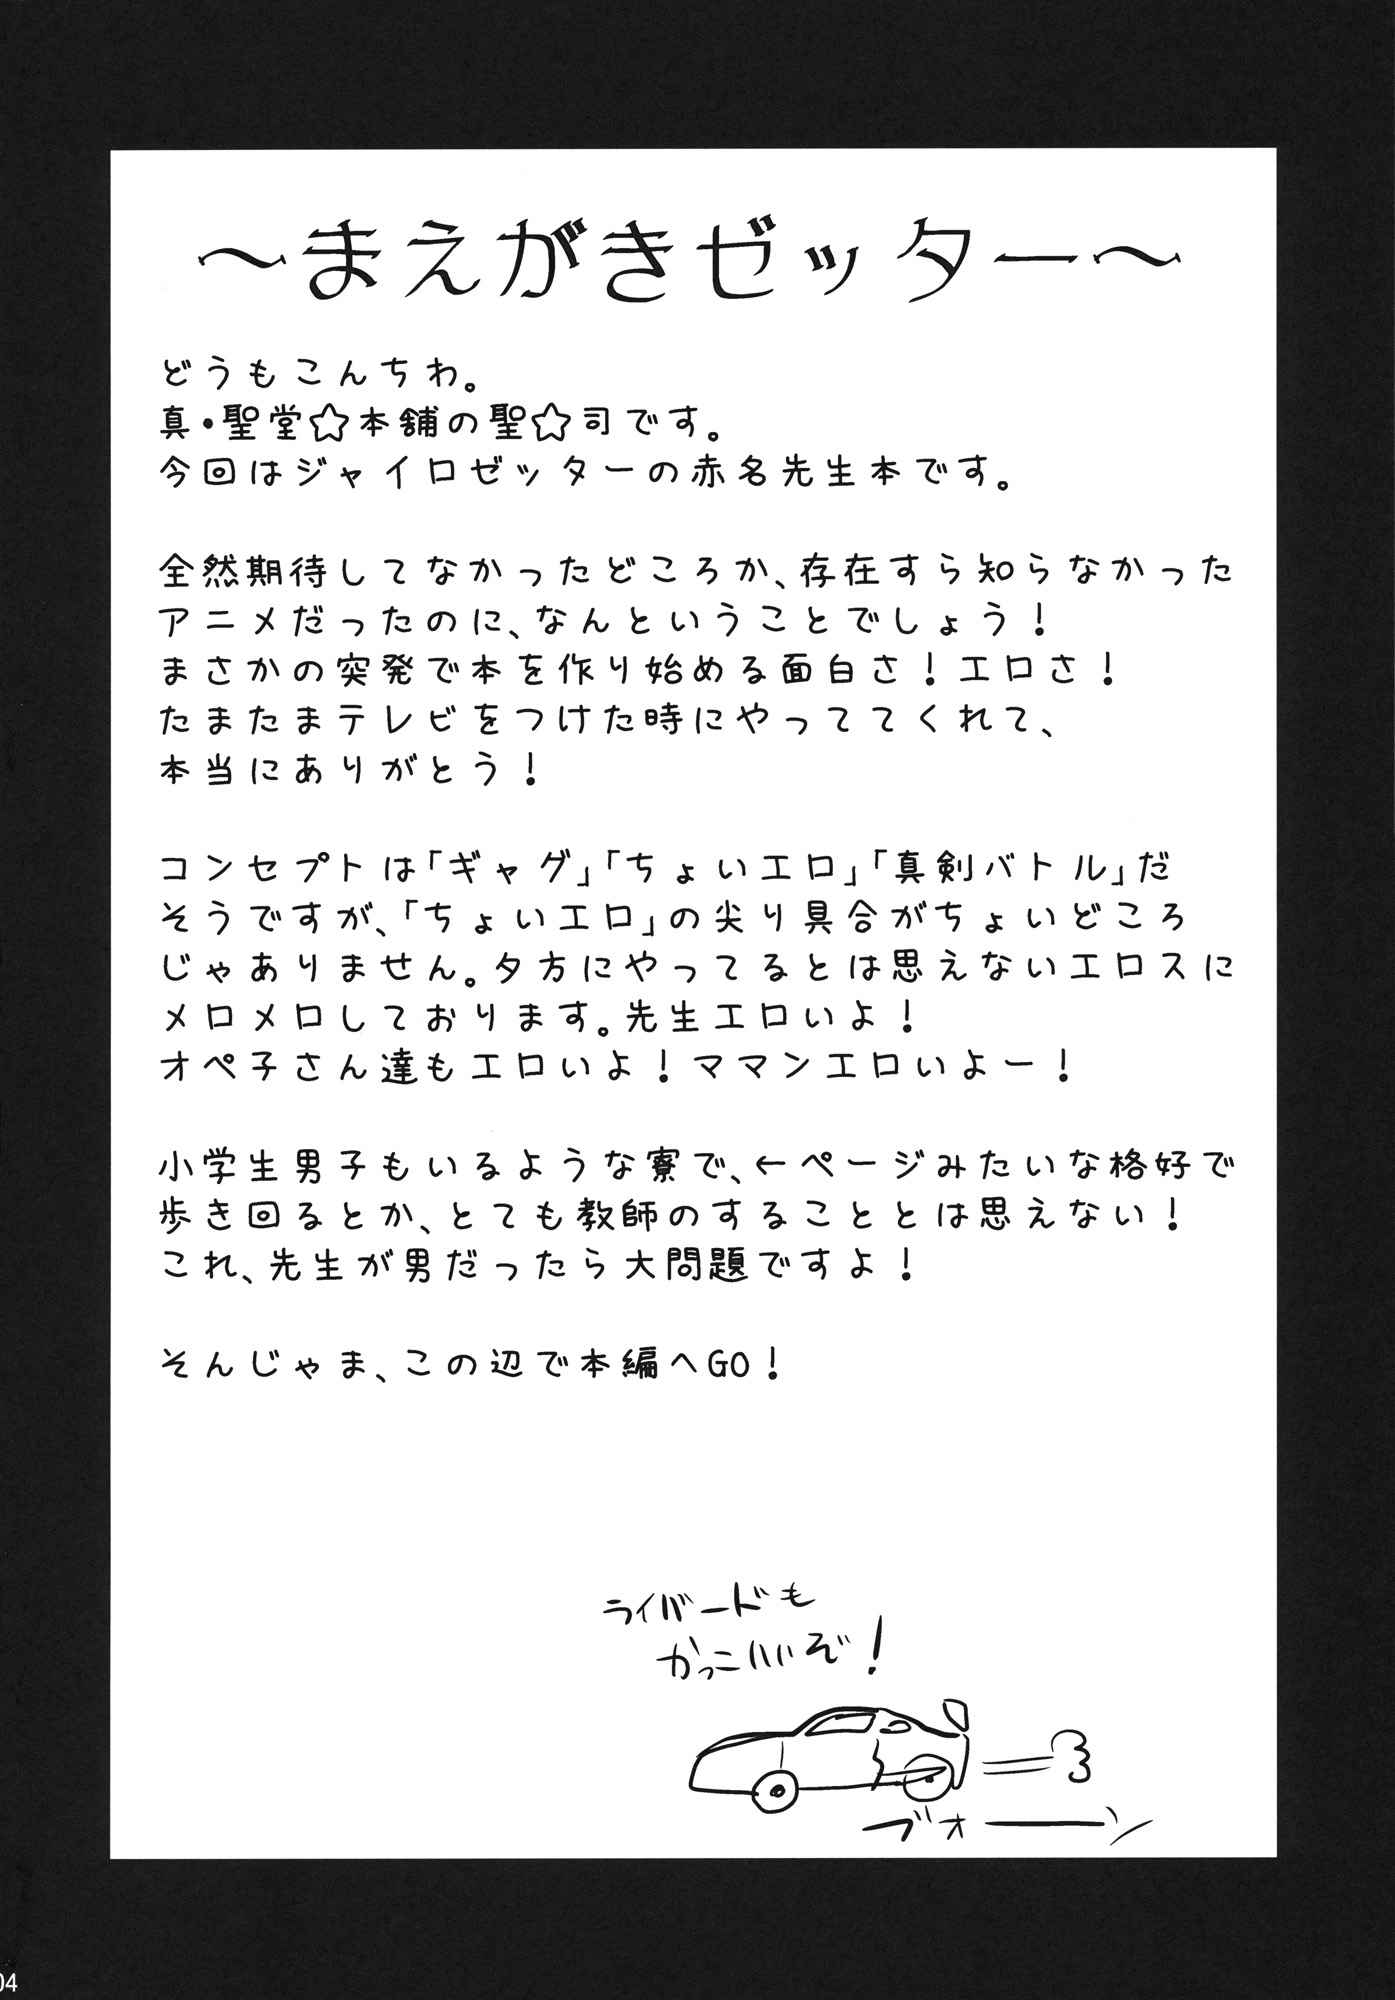 ～まえがきゼッター～
どうもこんちわ。
真・聖堂☆本舗の聖☆司です。
今回はジャイロゼッターの赤名先生本です。
全然期待してなかったどころか、存在すら知らなかった
アニメだったのに、なんということでしょう！
まさかの突発で本を作り始める面白さ！エロさ！
たまたまテレビをつけた時にやっててくれて、
本当にありがとう！
コンセプトは「ギャグ」「ちょいエロ」「真剣バトル」だ
そうですが、「ちょいエロ」の尖り具合がちょいどころ
じゃありません。夕方にやってるとは思えないエロスに
メロメロしております。先生エロいよ！
オペ子さん達もエロいよ！ママンエロいよー！
小学生男子もいるような寮で、←ページみたいな格好で
歩き回るとか、とても教師のすることとは思えない！
これ、先生が男だったら大問題ですよ！
そんじゃま、この辺で本編へGO！
ライバードも
かっこいいぞ！
ブオーン
04